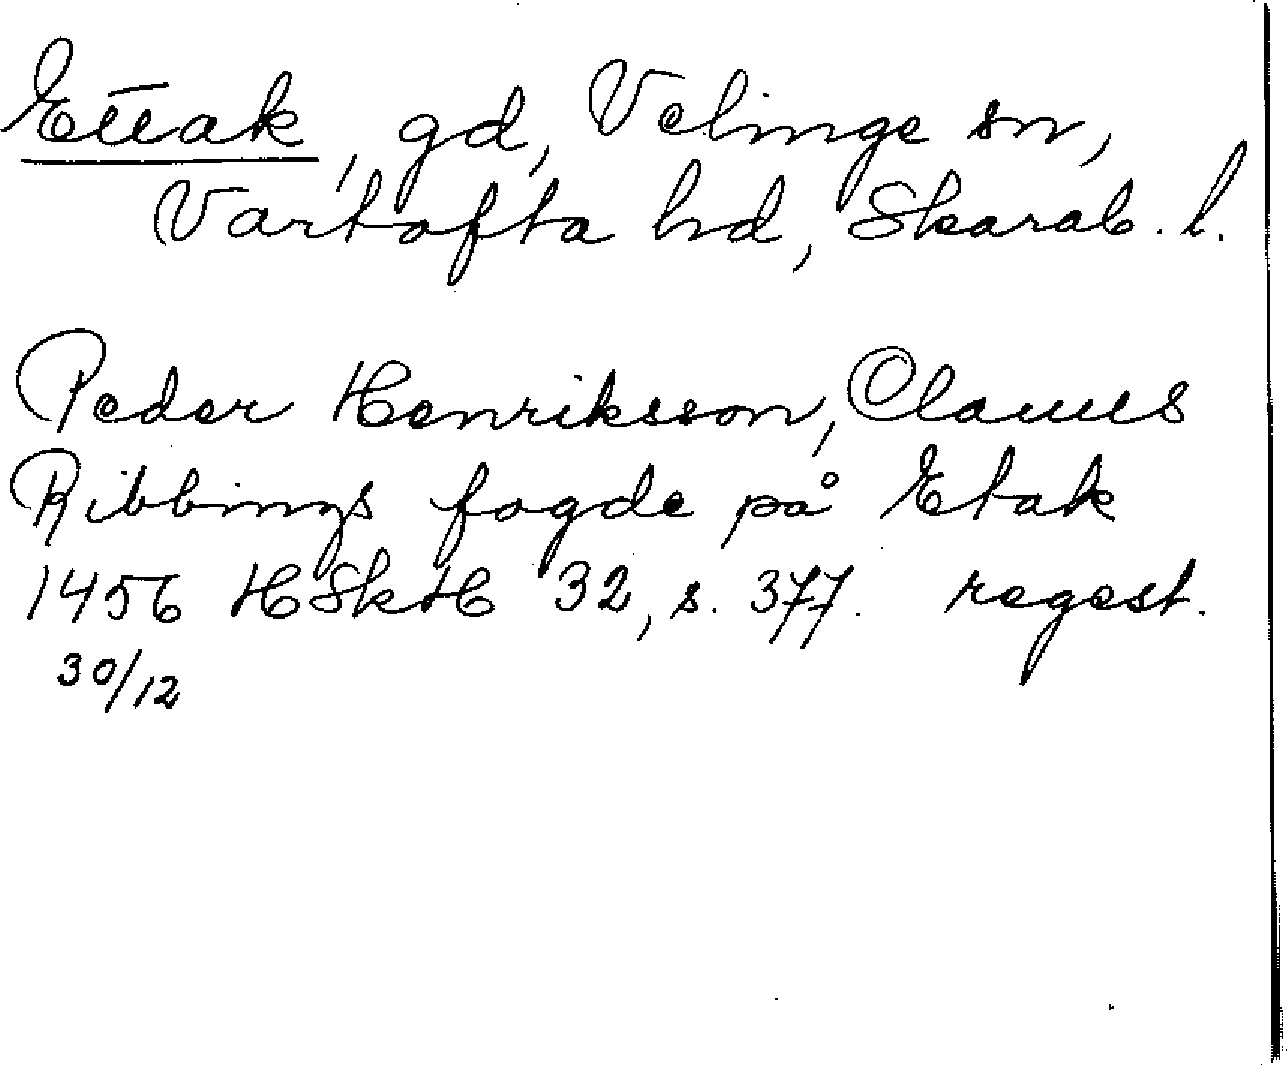 Ettak, gd, Velinge sn,
Vartofta hd, Skarab. l.
Peder Henriksson, Clawes
Ribbings fogde på Etak
1456 HSkH 32, s. 377. regest.
30/12